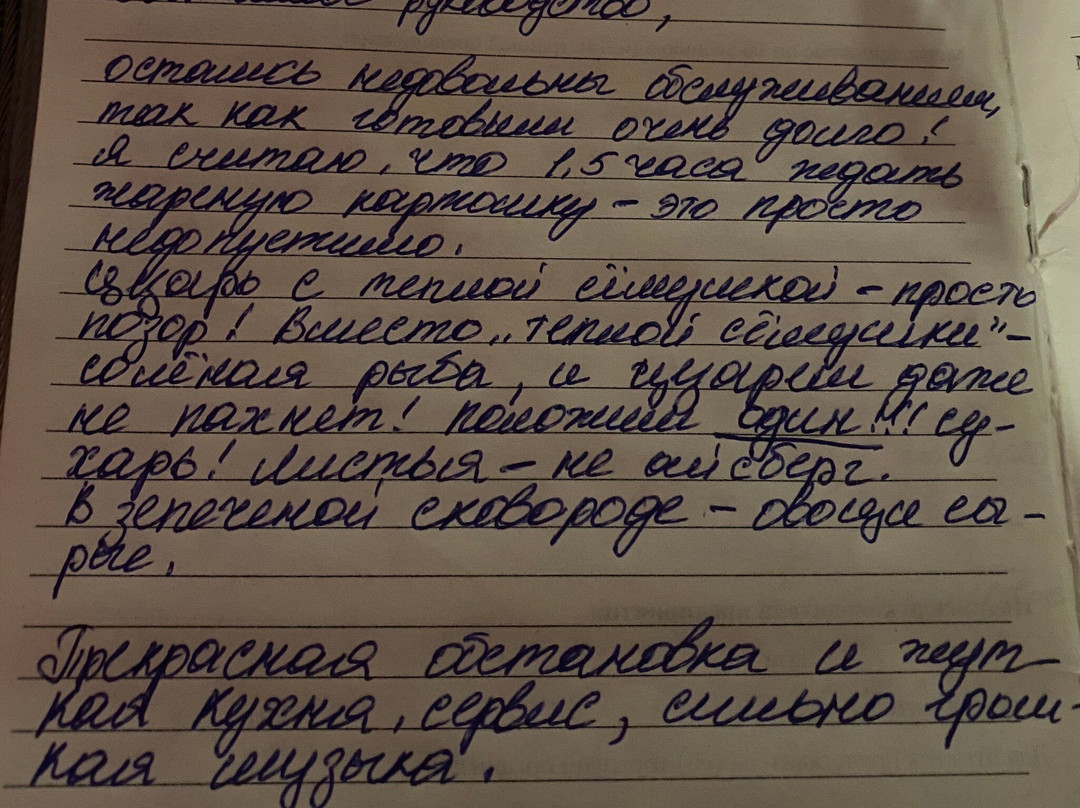 руководство,
остались недовольны обслуживанием,
так как готовили очень долго!
Я считаю, что 1,5 часа ждать
жареную картошку – это просто
недопустимо.
Цезарь с теплой сёмушкой – просто
позор! Вместо „теплой сёмушки" –
солёная рыба, и цезарем даже
не пахнет! Положили один!!! су-
харь! Листья – не айсберг.
В зепеченой сковороде – овощи сы-
рые.
Прекрасная обстановка и жут-
кая кухня, сервис, сильно гром-
кая музыка.